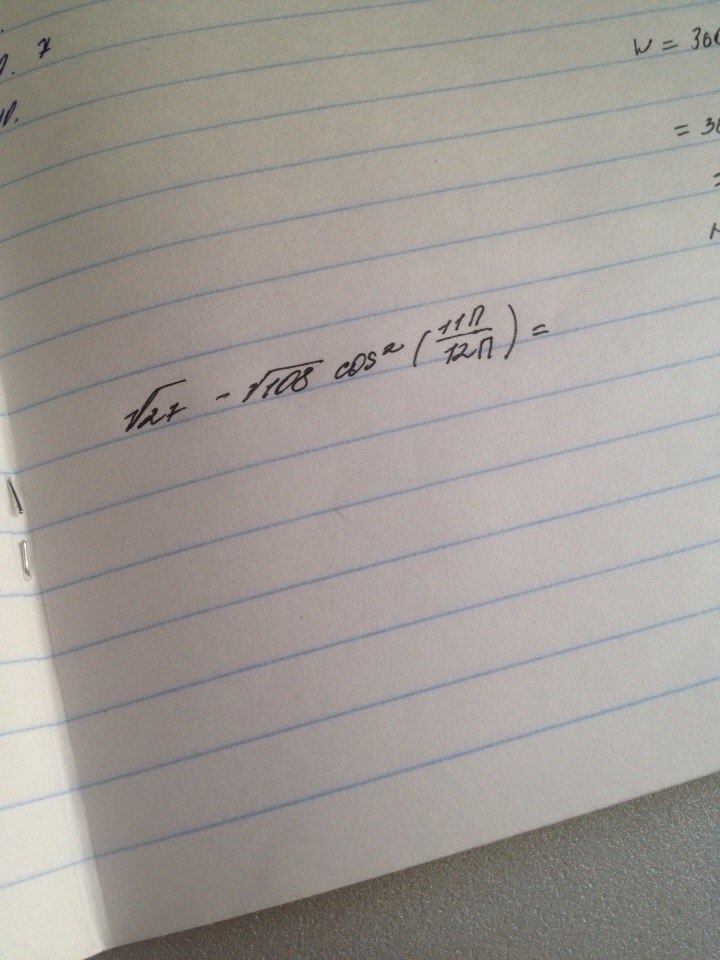 7
W = 300
= 30
√27 - √108 cos² (11П/12П) =